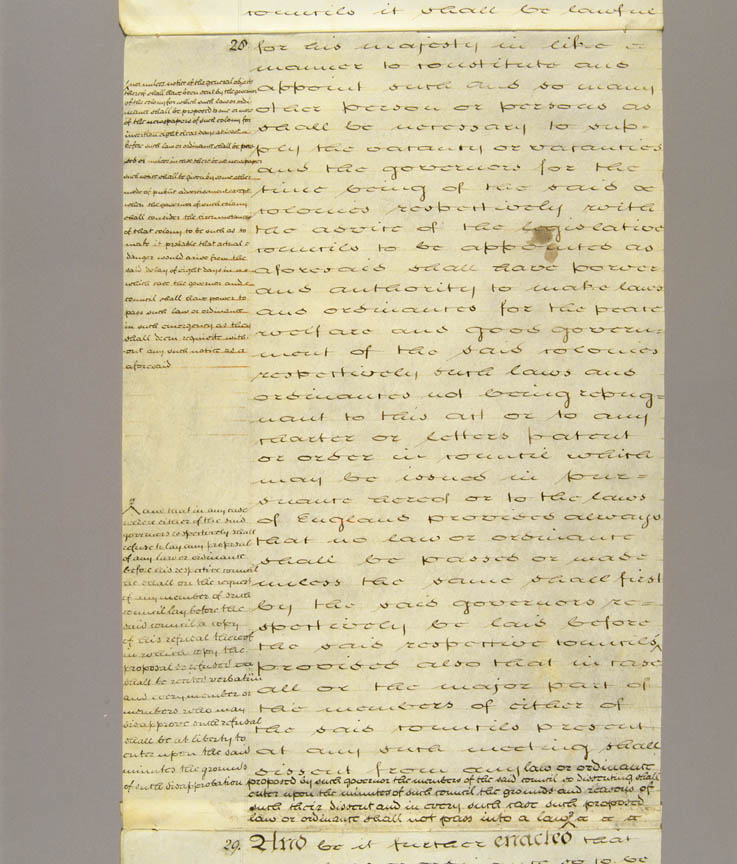 councils it shall be lawful
28
for his majesty in like
manner to constitute and
appoint such and so many
other person or persons as
shall be necessary to sup-
ply the vacancy or vacancies
and the governors for the
time being of the said
colonies respectively with
the advice of the legislative
councils to be appointed as
aforesaid shall have power
and authority to make laws
and ordinances for the peace
welfare and good govern-
ment of the said colonies
respectively such laws and
ordinances not being repug=
nant to this act or to any
charter or letters patent
or order in council which
may be issued in pur-
suance hereof or to the laws
of England provided always
that no law or ordinance
shall be passed or made
unless the same shall first
by the said governors re=
spectively be laid before
the said respective councils
provided also that in case
all or the major part of
the members of either of
the said councils present
at any such meeting shall
dissent from any law or ordinance
proposed by such governor the members of the said council so dissenting shall
enter upon the minutes of such council the grounds and reasons of
such their dissent and in every such case such proposed
law or ordinance shall not pass into a law
nor unless notice of the general objects
thereof shall have been given by the governor
of the colony for which such law or ordi
nance shall be proposed in one or more
of the newspapers of such colony for
eight clear days at least
before such law or ordinance shall be pro
or in case there be no newspaper
such notice shall be given by some other
mode of public advertisement except
when the governor of such colony
shall consider the circumstances
of that colony to be such as to
make it probable that actual
danger would arise from the
said delay of eight days in
which case the governor and
council shall have power to
pass such law or ordinance
in such emergency as they
shall deem requisite with
out any such notice as a
aforesaid
and that in any case
where either of the said
governors respectively shall
refuse to lay any proposal
of any law or ordinance
before his respective council
he shall on the request
of any member of such
council lay before the
said council a copy
of his refusal thereof
in which copy the
proposal so refused
shall be recited verbatim
and every member or
members who may
disapprove such refusal
shall be at liberty to
enter upon the said
minutes the grounds
of such disapprobation
29. And be it further enacted that